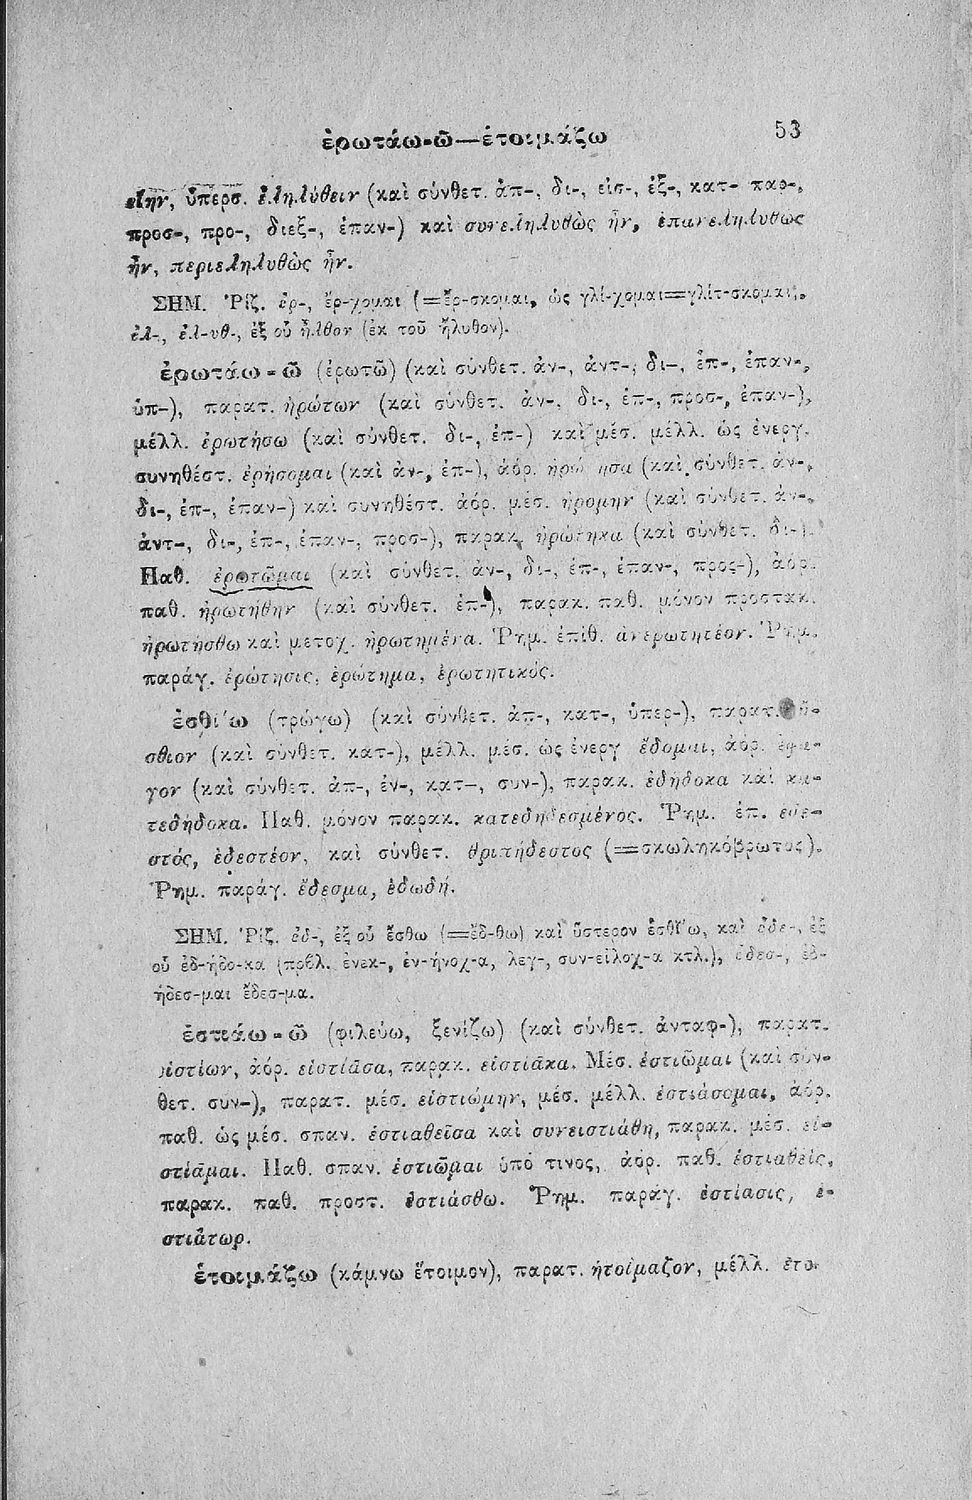 ἐρωτάω-ῶ—ἑτοιμάζω 53
είην, ὑπερσ. ἐληλύθειν (καὶ σύνθετ. ἀπ-, δι-, εἰσ-, ἐξ-, κατ- παρ-,
προσ-, προ-, διεξ-, ἐπαν-) καὶ συνεληλυθὼς ἦν, ἐπανεληλυθὼς
ἦν, περιεληλυθὼς ἦν.
ΣΗΜ. Ῥίζ. ἐρ-, ἔρ-χομαι (=ἔρ-σκομαι, ὡς γλί-χομαι=γλίτ-σκομαι),
ἐλ-, ἐλ-υθ-, ἐξ οὗ ἦλθον (ἐκ τοῦ ἤλυθον).
ἐρωτάω-ῶ (ἐρωτῶ) (καὶ σύνθετ. ἀν-, ἀντ-, δι-, ἐπ-, ἐπαν-,
ὑπ-), παρατ. ἠρώτων (καὶ σύνθετ. ἀν-, δι-, ἐπ-, προσ-, ἐπαν-),
μέλλ. ἐρωτήσω (καὶ σύνθετ. δι-, ἐπ-) καὶ μέσ. μέλλ. ὡς ἐνεργ.
συνηθέστ. ἐρήσομαι (καὶ ἀν-, ἐπ-), ἀόρ. ἠρώτησα (καὶ σύνθετ. ἀν-,
δι-, ἐπ-, ἐπαν-) καὶ συνηθέστ. ἀόρ. μέσ. ἠρόμην (καὶ σύνθετ. ἀν-,
ἀντ-, δι-, ἐπ-, ἐπαν-, προσ-), παρακ. ἠρώτηκα (καὶ σύνθετ. δι-).
Παθ. ἐρωτῶμαι (καὶ σύνθετ. ἀν-, δι-, ἐπ-, ἐπαν-, προς-), ἀόρ.
παθ. ἠρωτήθην (καὶ σύνθετ. ἐπ-), παρακ. παθ. μόνον προστακ.
ἠρωτήσθω καὶ μετοχ. ἠρωτημένα. Ῥημ. ἐπίθ. ἀνερωτητέον. Ῥημ.
παράγ. ἐρώτησις, ἐρώτημα, ἐρωτητικός.
ἐσθίω (τρώγω) (καὶ σύνθετ. ἀπ-, κατ-, ὑπερ-), παρατ. ἤ-
σθιον (καὶ σύνθετ. κατ-), μέλλ. μέσ. ὡς ἐνεργ ἔδομαι, ἀόρ. ἔφα-
γον (καὶ σύνθετ. ἀπ-, ἐν-, κατ-, συν-), παρακ. ἐδήδοκα καὶ κα-
τεδήδοκα. Παθ. μόνον παρακ. κατεδηδεσμένος. Ῥημ. ἐπ. ἐδε-
στός, ἐδεστέον, καὶ σύνθετ. θριπήδεστος (=σκωληκόβρωτος).
Ῥημ. παράγ. ἔδεσμα, ἐδωδή.
ΣΗΜ. Ῥίζ. ἐδ-, ἐξ οὗ ἔσθω (=ἔδ-θω) καὶ ὕστερον ἐσθίω, καὶ ἐδε-, ἐξ
οὗ ἐδ-ήδο-κα (πρβλ. ἐνεκ-, ἐν-ήνοχ-α, λεγ-, συν-είλοχ-α κτλ.), ἐδεσ-, ἐδ-
ήδεσ-μαι ἔδεσ-μα.
ἑστιάω-ῶ (φιλεύω, ξενίζω) (καὶ σύνθετ. ἀνταφ-), παρατ.
εἱστίων, ἀόρ. εἱστίασα, παρακ. εἱστίακα. Μέσ. ἑστιῶμαι (καὶ σύν-
θετ. συν-), παρατ. μέσ. εἱστιώμην, μέσ. μέλλ. ἑστιάσομαι, ἀόρ.
παθ. ὡς μέσ. σπαν. ἑστιαθεῖσα καὶ συνειστιάθη, παρακ. μέσ. εἱ-
στίαμαι. Παθ. σπαν. ἑστιῶμαι ὑπό τινος, ἀόρ. παθ. ἑστιαθείς,
παρακ. παθ. προστ. ἑστιάσθω. Ῥημ. παράγ. ἑστίασις, ἑ-
στιάτωρ.
ἑτοιμάζω (κάμνω ἕτοιμον), παρατ. ἡτοίμαζον, μέλλ. ἑτοι-